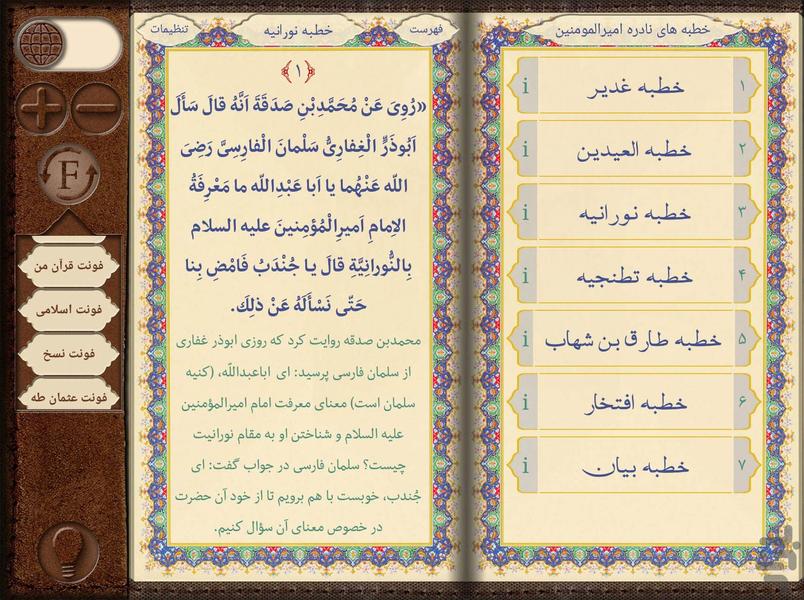 خطبه های نادره امیرالمومنین
۱ خطبه غدیر i
۲ خطبه العیدین i
۳ خطبه نورانیه i
۴ خطبه تطنجیه i
۵ خطبه طارق بن شهاب i
۶ خطبه افتخار i
۷ خطبه بیان i
فهرست
خطبه نورانیه
تنظیمات
﴿۱﴾
«رُوِیَ عَنْ مُحَمَّدِبْنِ صَدَقَةَ اَنَّهُ قالَ سَأَلَ
اَبُوذَرٍّ الْغِفارِیُّ سَلْمانَ الْفارِسِیَّ رَضِیَ
اللّه عَنْهُما یا اَبا عَبْدِاللّه ما مَعْرِفَةُ
الاِمامِ اَمیرِالْمُؤمِنینَ علیه السلام
بِالنُّورانِیَّةِ قالَ یا جُنْدَبُ فَامْضِ بِنا
حَتّی نَسْأَلَهُ عَنْ ذلِكَ.
محمدبن صدقه روایت کرد که روزی ابوذر غفاری
از سلمان فارسی پرسید: ای اباعبداللّه، (کنیه
سلمان است) معنای معرفت امام امیرالمؤمنین
علیه السلام و شناختن او به مقام نورانیت
چیست؟ سلمان فارسی در جواب گفت: ای
جُندب، خوبست با هم برویم تا از خود آن حضرت
در خصوص معنای آن سؤال کنیم.
F
فونت قرآن من
فونت اسلامی
فونت نسخ
فونت عثمان طه